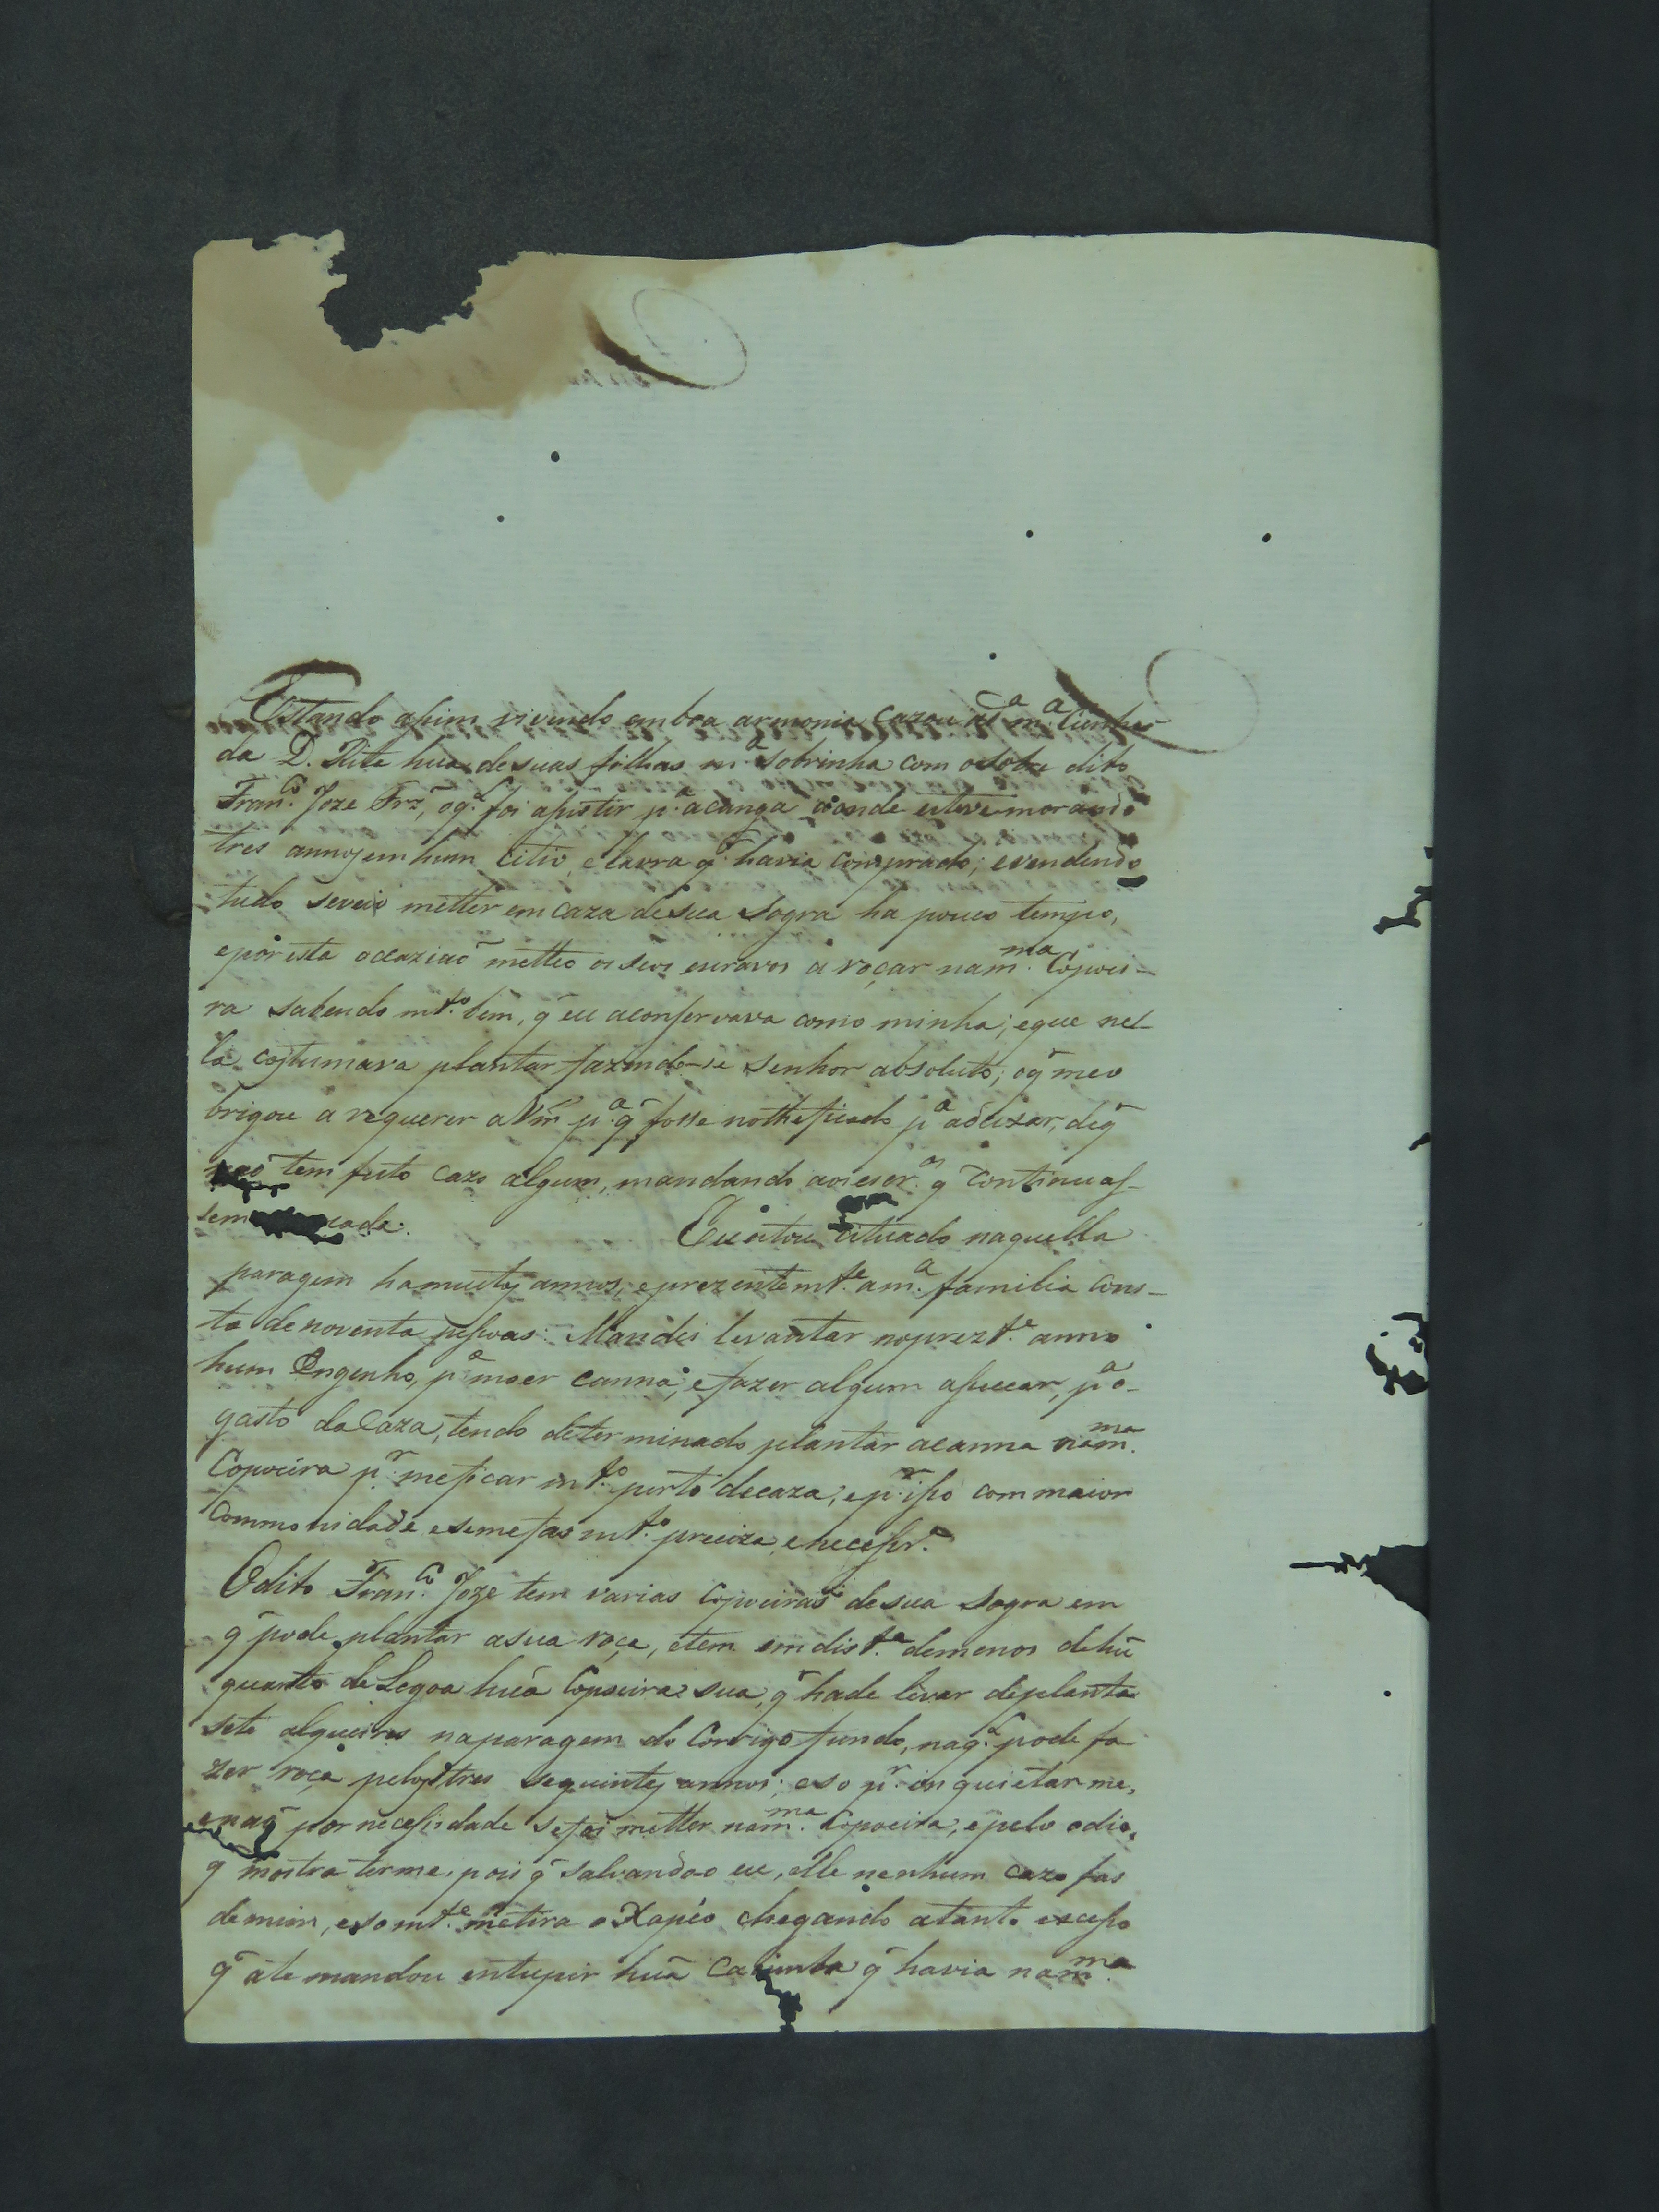 Estando aſsim vivendo em boa armonia cazou a dª mª Cunha
da D. Rita hua de suas filhas mª sobrinha com o sobre dito
Franco. Joze Frz, o ql foi aſsistir pª acanga aonde esteve morando
tres annos em hum citio, e lavra q̃ havia comprado; e vendendo
tudo seveio metter em caza de sua sogra ha pouco tempo,
e por esta occaziaõ metteo os seos escravos a roçar na mma Copoei-
ra sabendo mto bem, q̃ eu aconservava como minha; eque nel-
la costumava plantar fazendo-se senhor absoluto; oq̃ meo
brigou a requerer a Vm pª q̃ fosse notheficado pª adeixar, deq̃
naõ tem feito cazo algum, mandando aos escros q̃ continuas-
sem cada.
Eu estou cituado naquella
paragem ha muitos annos, e prezentemte a mª familia cons-
ta de noventa peſsoas: Mandei levantar no prezte anno
hum Engenho, pª moer canna, e fazer algum aſsucar, pª o-
gasto da Caza, tendo determinado plantar acanna na mma
Copoeira pr meficar mto perto decaza, e pr iſso com maior
Commonidade e semefas mto preciza, e neceſsrª
Odito Franco. Joze tem varias Copoeiras de sua sogra em
q̃ pode plantar asua roça, etem em distª demenos de hũ
quarto de Legoa huã Copoeira sua, q̃ hade levar deplanta
sete alqueires naparagem do Corrigo fundo, naql pode fa
zer roça pelos tres seguintes annos; e so pr inquietar me,
enaõ por neceſsidade sefoi metter na mma Copoeira, e pelo odio,
q̃ mostra terme, pois q̃ salvandoo eu, elle nenhum cazo fas
demim, esomte metira o Xapéo chegando atanto exceſso
q̃ ate mandou entupir huã Cacimba q̃ havia na mma